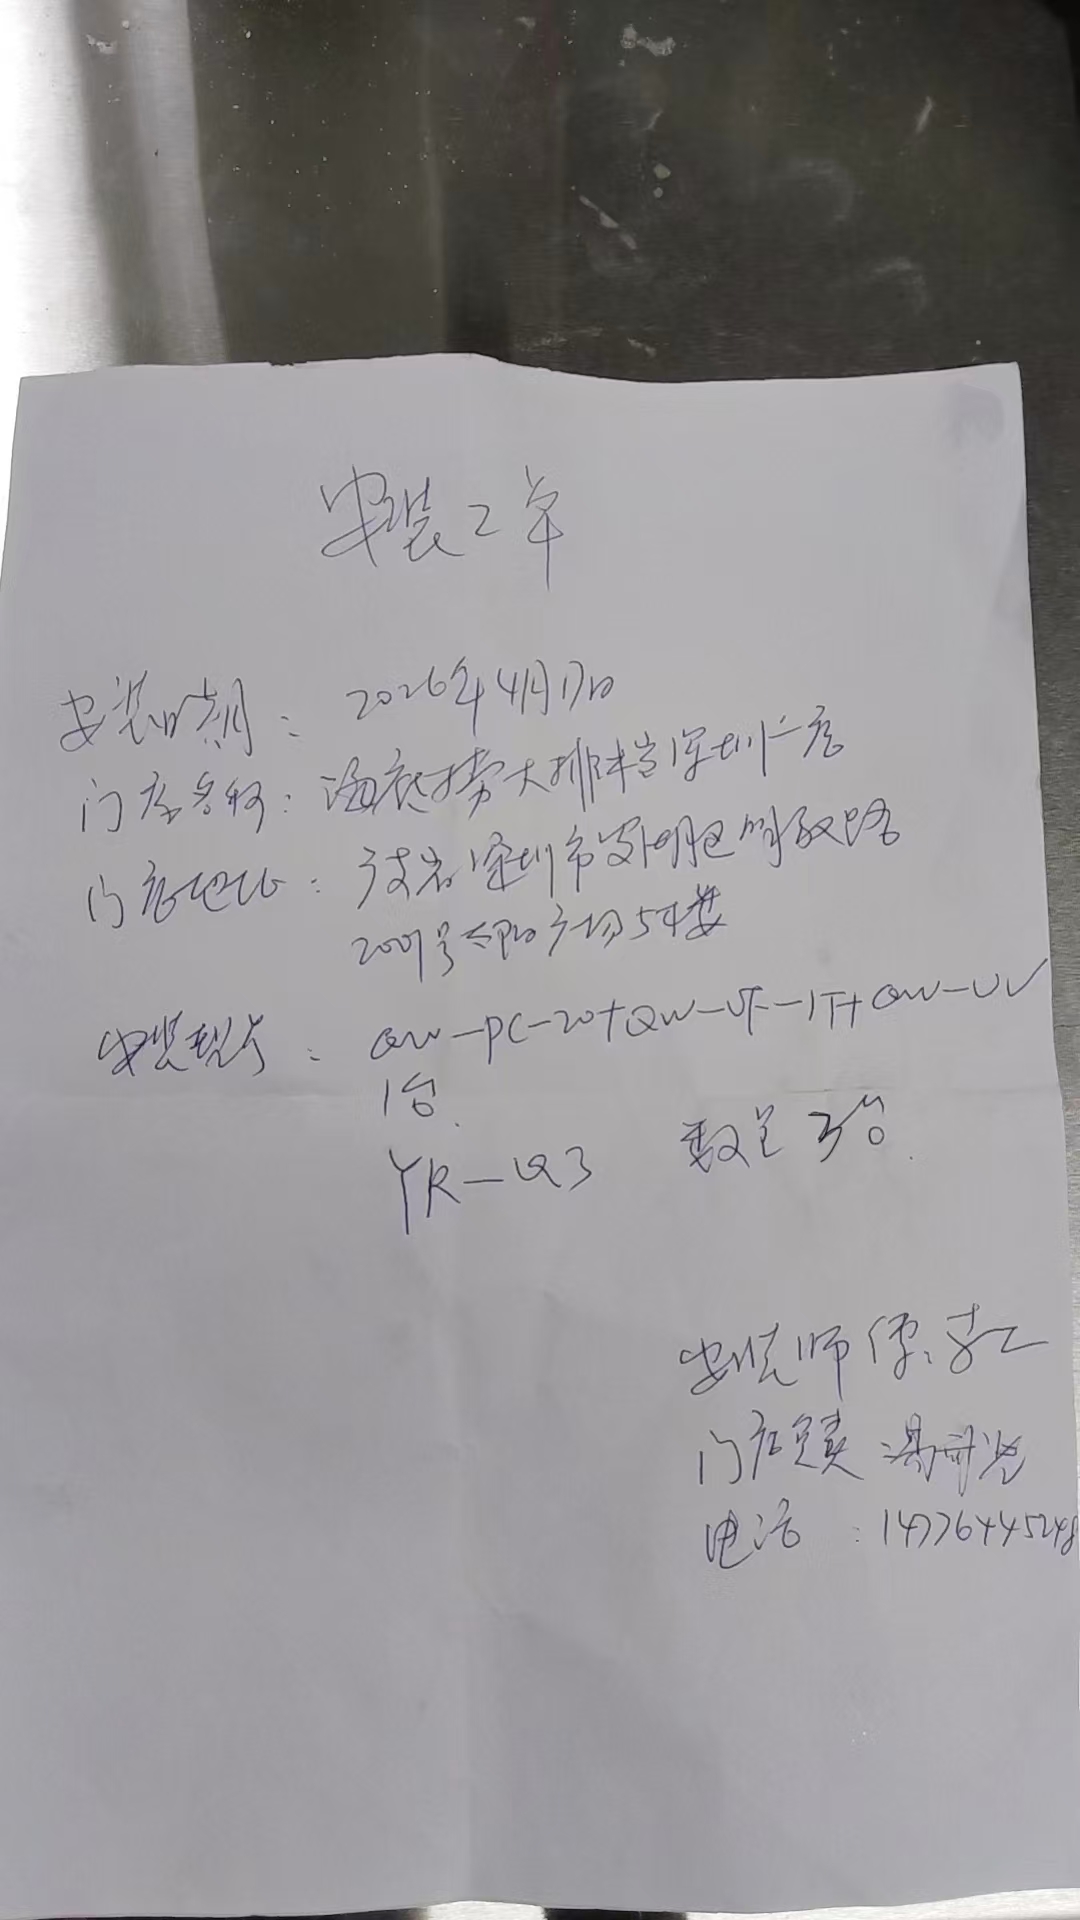 安装工单
安装时期: 2026年4月17日
门店名称: 海底捞大排档深圳一店
门店地址: 广东省深圳市罗湖区解放路
2001号太阳广场5楼
安装型号: QW-PC-20+QW-UF-1T+QW-UV
1台.
YR-LQ3 数量3台.
安装师傅:
门店负责
电话: 14776445248